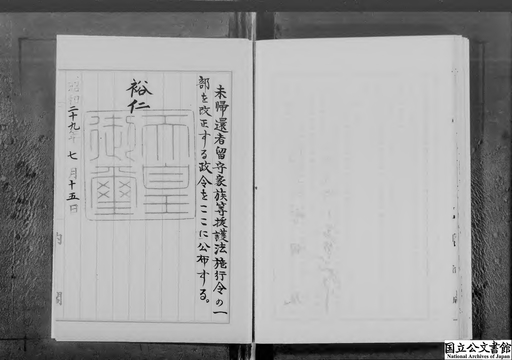 未帰還者留守家族等援護法施行令の一
部を改正する政令をここに公布する。
裕仁
天皇
御璽
昭和二十九年七月十五日
国立公文書館
National Archives of Japan